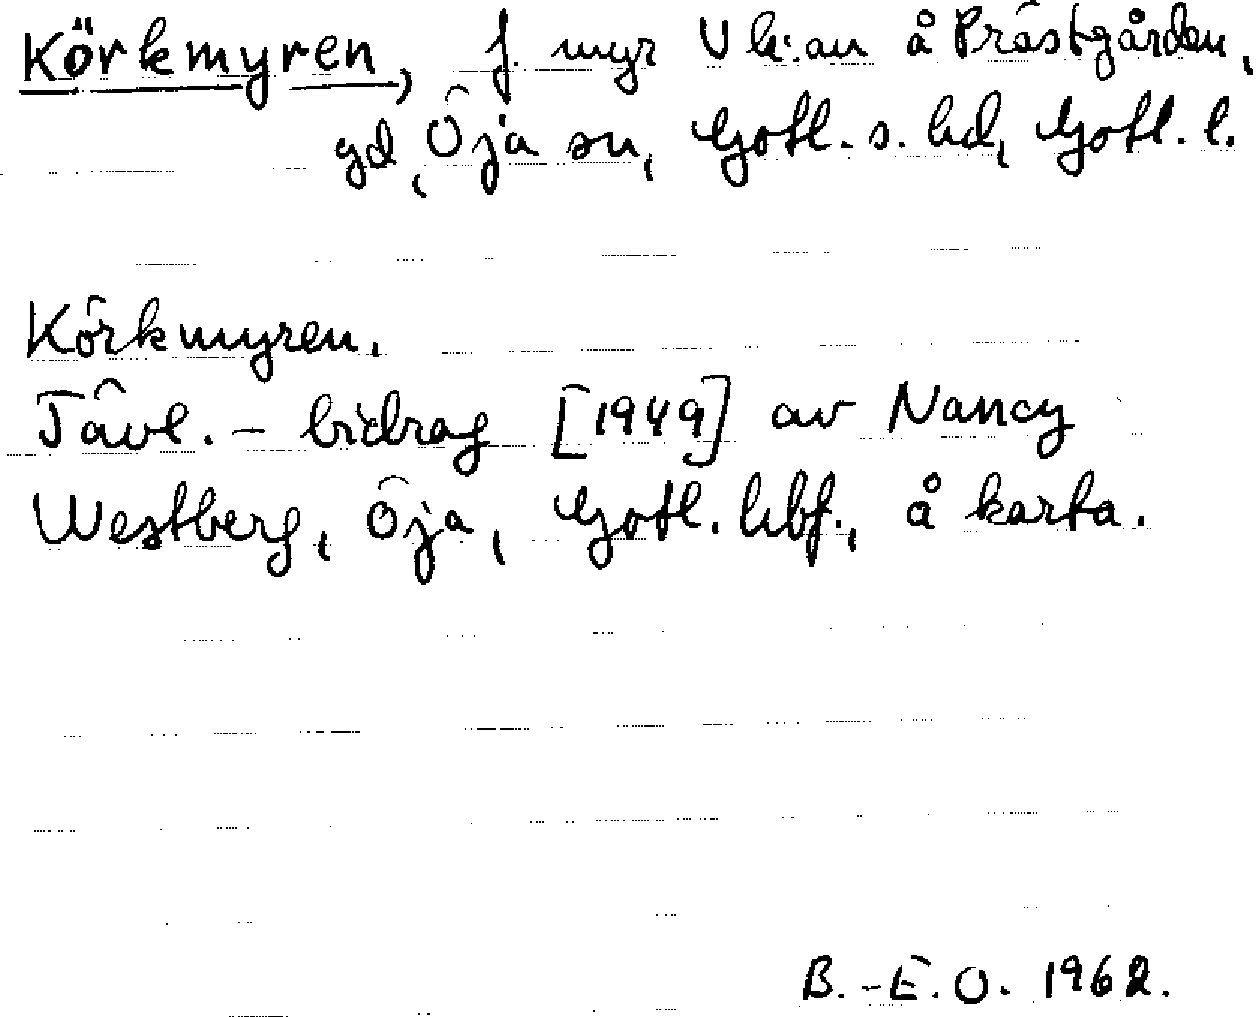 Körkmyren, f. myr V k:an å Prästgården,
gd, Öja sn, Gotl. s. hd, Gotl. l.
Körkmyren.
Tävl.-bidrag [1949] av Nancy
Westberg, Öja, Gotl. hbf., å karta.
B.-E.O. 1962.